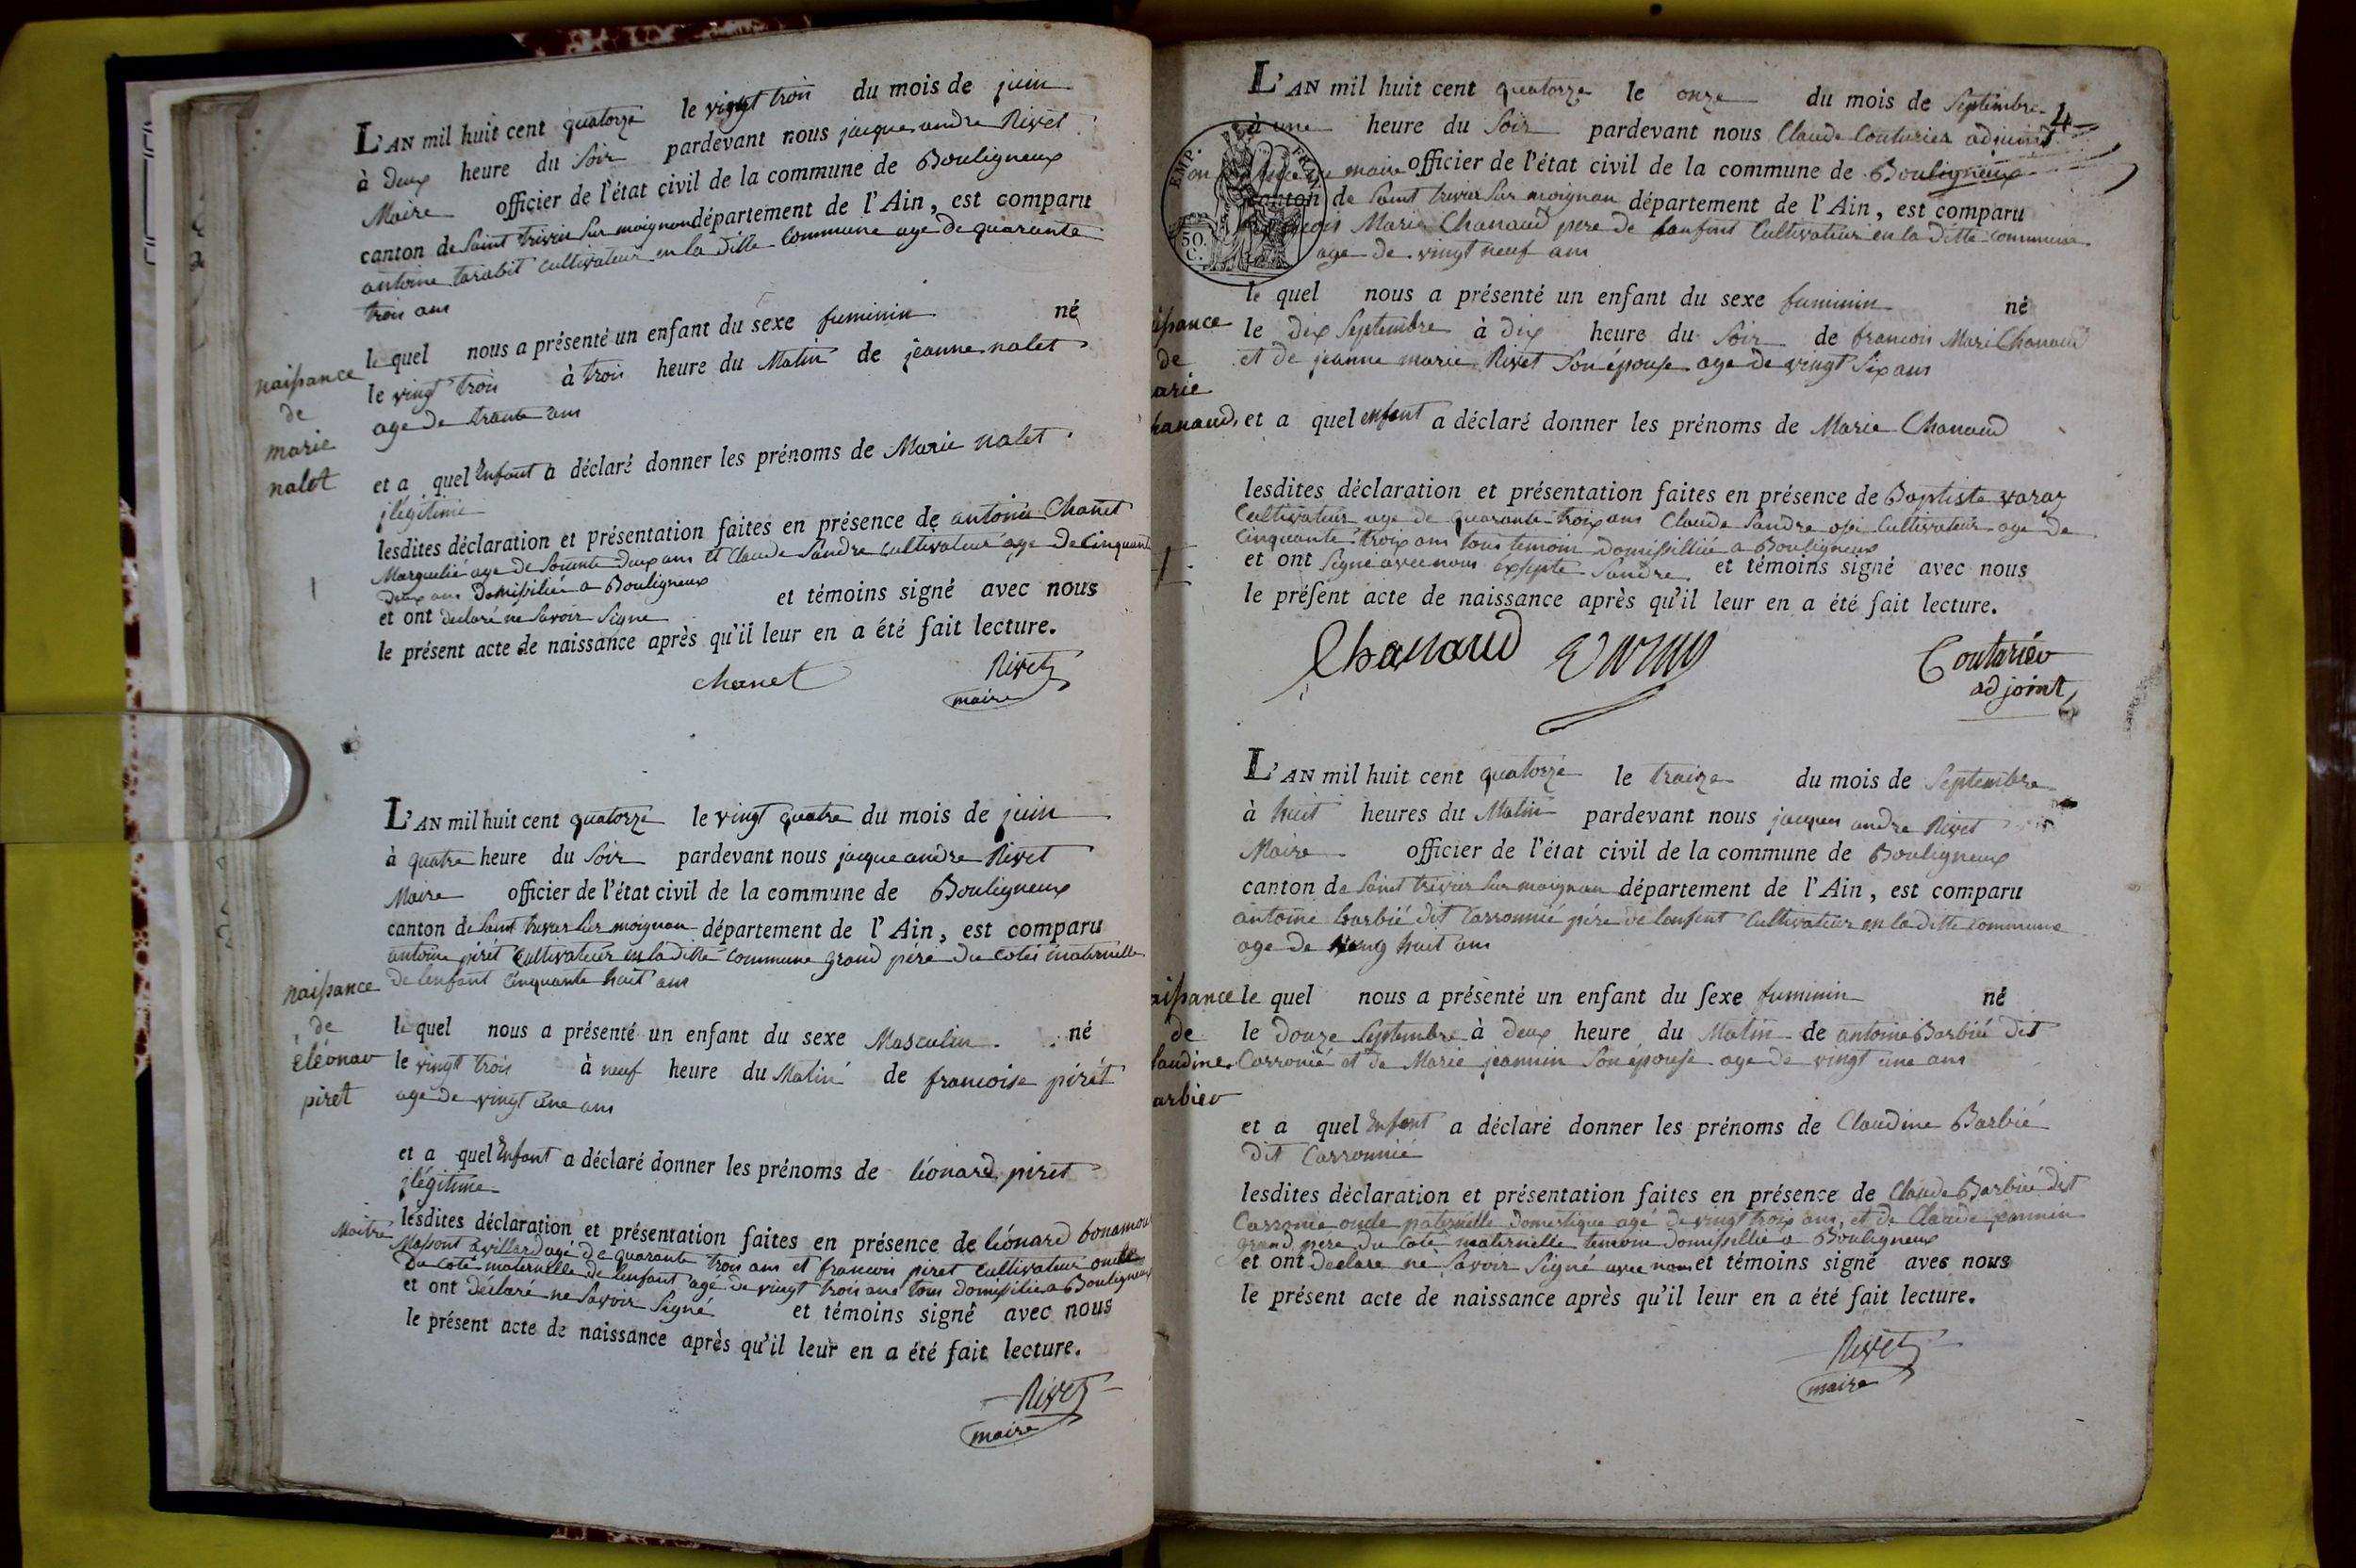 L'AN mil huit cent quatorze le vingt trois du mois de juin
à deux heure du Soir pardevant nous jacque andre Rivet
Maire officier de l'état civil de la commune de Bouligneux
canton de Saint trivier Sur moignan département de l'Ain, est comparu
antoine tarabit cultivateur en la ditte Commune age de quarante
trois ans
le quel nous a présenté un enfant du sexe feminin né
le vingt trois à trois heure du Matin de jeanne nalet
age de trante ans
naissance
de
marie
nalet
et a quel Enfant a déclaré donner les prénoms de Marie nalet
jlégitime
lesdites déclaration et présentation faites en présence de antoine Chanet
Marguelié age de Soixente deux ans et Claude Sandre cultivateur age de Cinquante
deux ans Domissilié a Bouligneux
et ont declaré ne Savoir Signe et témoins signé avec nous
le présent acte de naissance après qu'il leur en a été fait lecture.
chanet Rivet
maire
L'AN mil huit cent quatorze le vingt quatre du mois de juin
à quatre heure du Soir pardevant nous jacque andre Rivet
Maire officier de l'état civil de la commune de Bouligneux
canton de Saint trivier Sur moignan département de l'Ain, est comparu
antoine pirét Cultivateur en la ditte commune grand pére du cotés maternelle
de lenfant Cinquante huit ans
naissance
de
éléonar
piret
le quel nous a présenté un enfant du sexe Masculin né
le vingt trois à neuf heure du Matin de francoise pirét
age de vingt une ans
et a quel Enfant a déclaré donner les prénoms de léonard piret
jlégitime
lesdites déclaration et présentation faites en présence de léonard bonamour
Maitre Masson a villard agé de quarante trois ans et francois piret Cultivateur oncle
du coté maternelle de lenfant agé de vingt trois ans tous domissilié a Bouligneux
et ont déclaré ne Savoir Signé et témoins signé avec nous
le présent acte de naissance après qu'il leur en a été fait lecture.
Rivet
maire
4
L'AN mil huit cent quatorze le onze du mois de Septembre
à une heure du Soir pardevant nous Claude Couturier adjoint
maire officier de l'état civil de la commune de Bouligneux
canton de Saint trivier Sur moignan département de l'Ain, est comparu
Marie Chanaud pere de lanfant Cultivateur en la ditte commune
age de vingt neuf ans
EMP. FRAN.
50.
C.
le quel nous a présenté un enfant du sexe feminin né
le dix Septembre à dix heure du Soir de francois Mari Chanaud
et de jeanne marie Rivet Son épouse age de vingt Six ans
issance
de
arie
hanaud
et a quel enfant a déclaré donner les prénoms de Marie Chanaud
lesdites déclaration et présentation faites en présence de Baptiste varay
Cultivateur age de quarante troix ans Claude Sandre Cultivateur age de
Cinquante troix ans tous temoin domissilliée a Bouligneux
et ont Signé avec nous exsepte Sandre et témoins signé avec nous
le présent acte de naissance après qu'il leur en a été fait lecture.
Chanaud Couturier
adjoint
L'AN mil huit cent quatorze le traize du mois de Septembre
à huit heures du Matin pardevant nous jacques andre Rivet
Maire officier de l'état civil de la commune de Bouligneux
canton de Saint trivier Sur moignan département de l'Ain, est comparu
antoine barbié dit Carronnié pére de lanfent Cultivateur en la ditte commune
age de huit ans
le quel nous a présenté un enfant du sexe feminin né
le douze Septembre à deux heure du Matin de antoine Barbié dit
Carronié et de Marie jeannin Son épouse age de vingt une ans
aissance
de
laudine
arbier
et a quel Enfant a déclaré donner les prénoms de Claudine Barbié
dit Carronnié
lesdites déclaration et présentation faites en présence de Claude Barbié dit
Carronié oncle paternelle domestique agé de vingt troix ans, et de Claude jeannin
grand pere du coté maternelle temoin domissillié a Bouligneux
et ont declare ne Savoir Signé avec nous et témoins signé avec nous
le présent acte de naissance après qu'il leur en a été fait lecture.
Rivet
maire